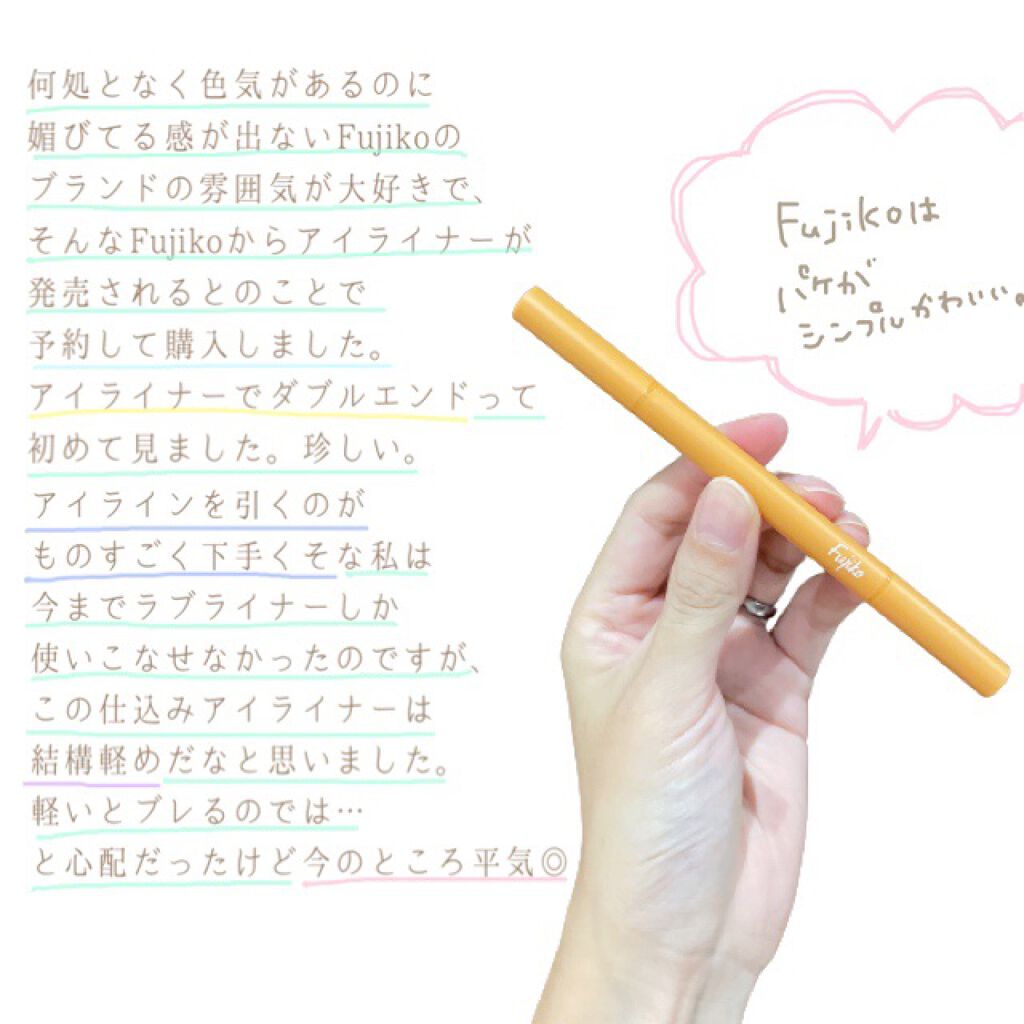 何処となく色気があるのに
媚びてる感が出ないFujikoの
ブランドの雰囲気が大好きで、
そんなFujikoからアイライナーが
発売されるとのことで
予約して購入しました。
アイライナーでダブルエンドって
初めて見ました。珍しい。
アイラインを引くのが
ものすごく下手くそな私は
今までラブライナーしか
使いこなせなかったのですが、
この仕込みアイライナーは
結構軽めだなと思いました。
軽いとブレるのでは…
と心配だったけど今のところ平気◎
Fujikoは
パケが
シンプルかわいい。
Fujiko